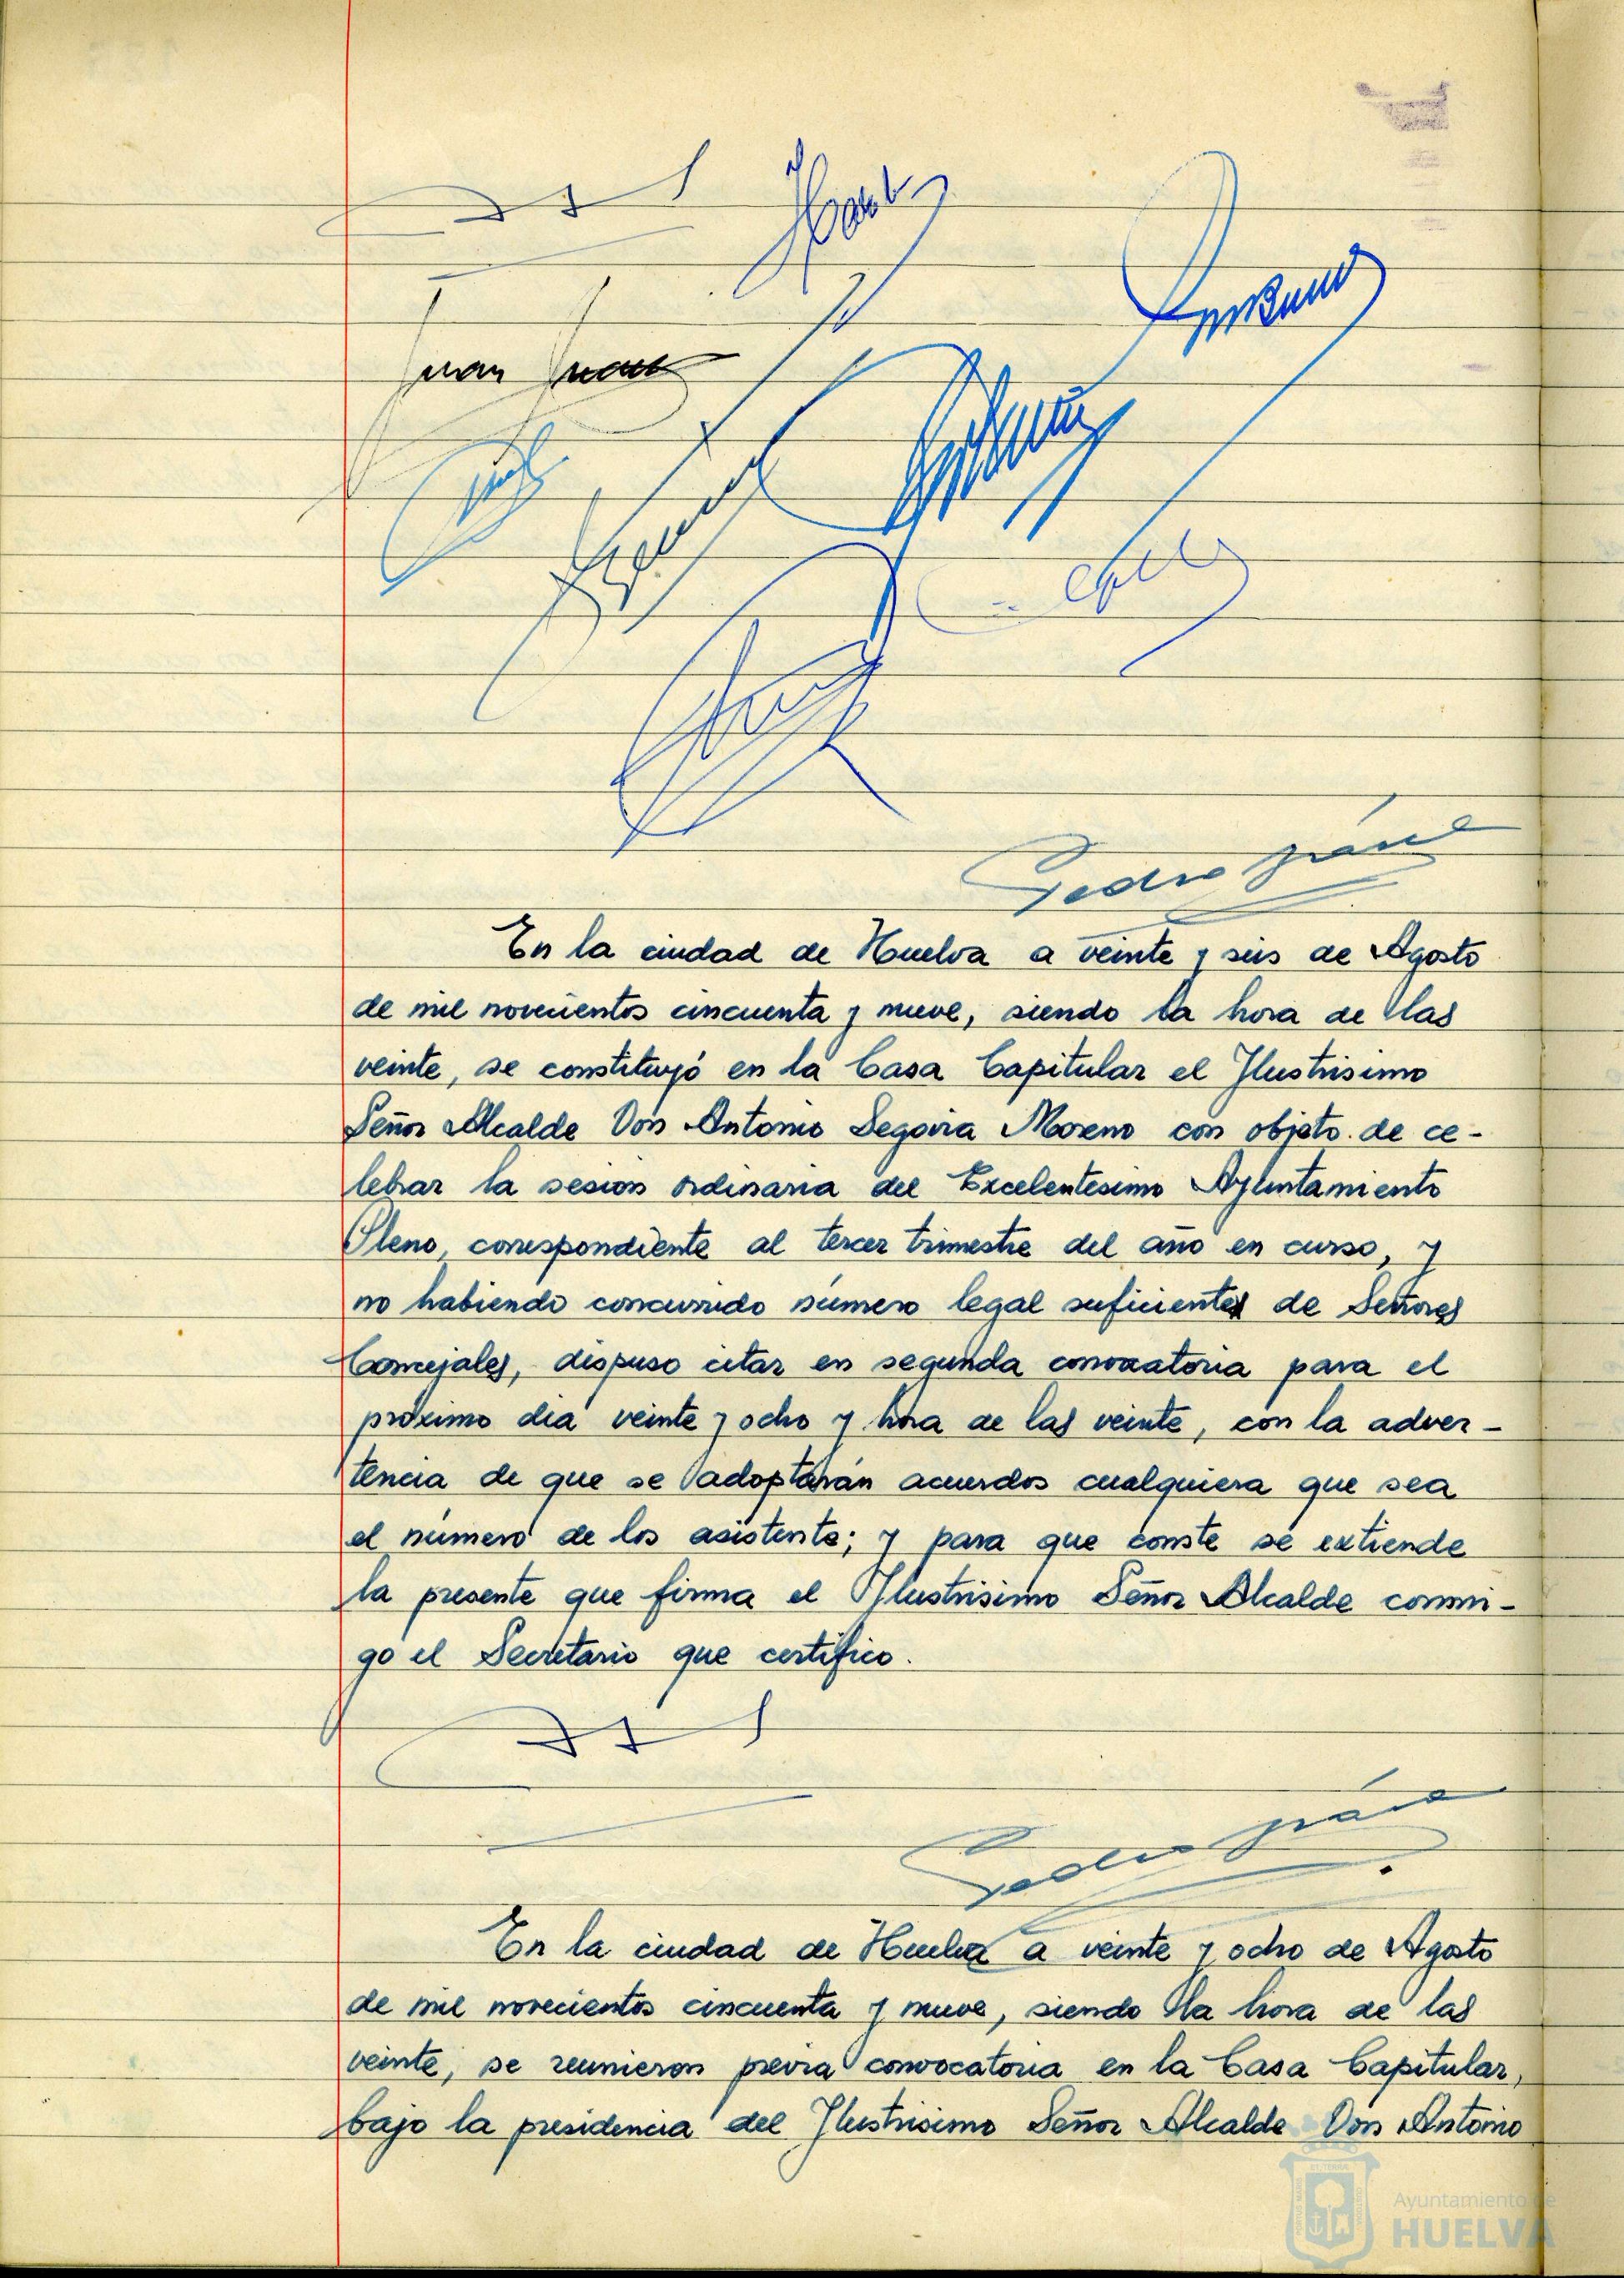 Juan
Pedro
En la ciudad de Huelva a veinte y seis de Agosto
de mil novecientos cincuenta y nueve, siendo la hora de las
veinte, se constituyó en la Casa Capitular el Ilustrisimo
Señor Alcalde Don Antonio Segovia Moreno con objeto de ce-
lebrar la sesion ordinaria del Excelentesimo Ayuntamiento
Pleno, correspondiente al tercer trimestre del año en curso, y
no habiendo concurrido número legal suficientes de Señores
Concejales, dispuso citar en segunda convocatoria para el
próximo dia veinte y ocho y hora de las veinte, con la adver-
tencia de que se adoptarán acuerdos cualquiera que sea
el número de los asistente; y para que conste se extiende
la presente que firma el Ilustrisimo Señor Alcalde conmi-
go el Secretario que certifico.
Pedro
En la ciudad de Huelva a veinte y ocho de Agosto
de mil novecientos cincuenta y nueve, siendo la hora de las
veinte, se reunieron previa convocatoria en la Casa Capitular,
bajo la presidencia del Ilustrisimo Señor Alcalde Don Antonio
Ayuntamiento de
HUELVA